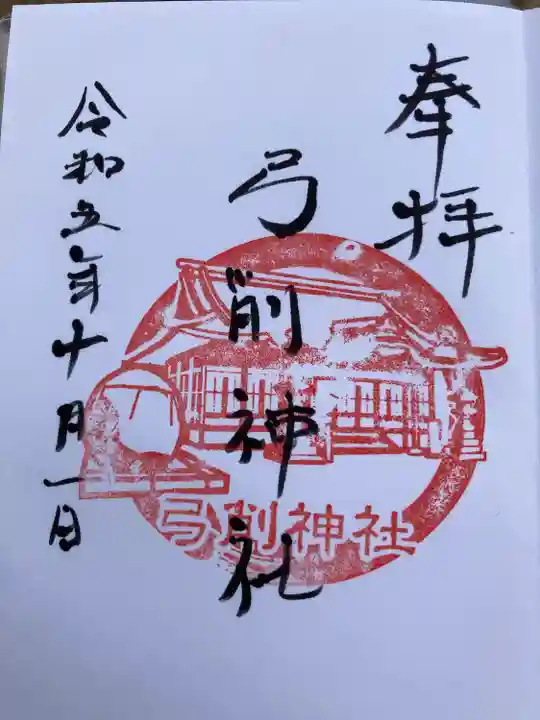 奉拝
弓削神社
令和五年十月一日
弓削神社